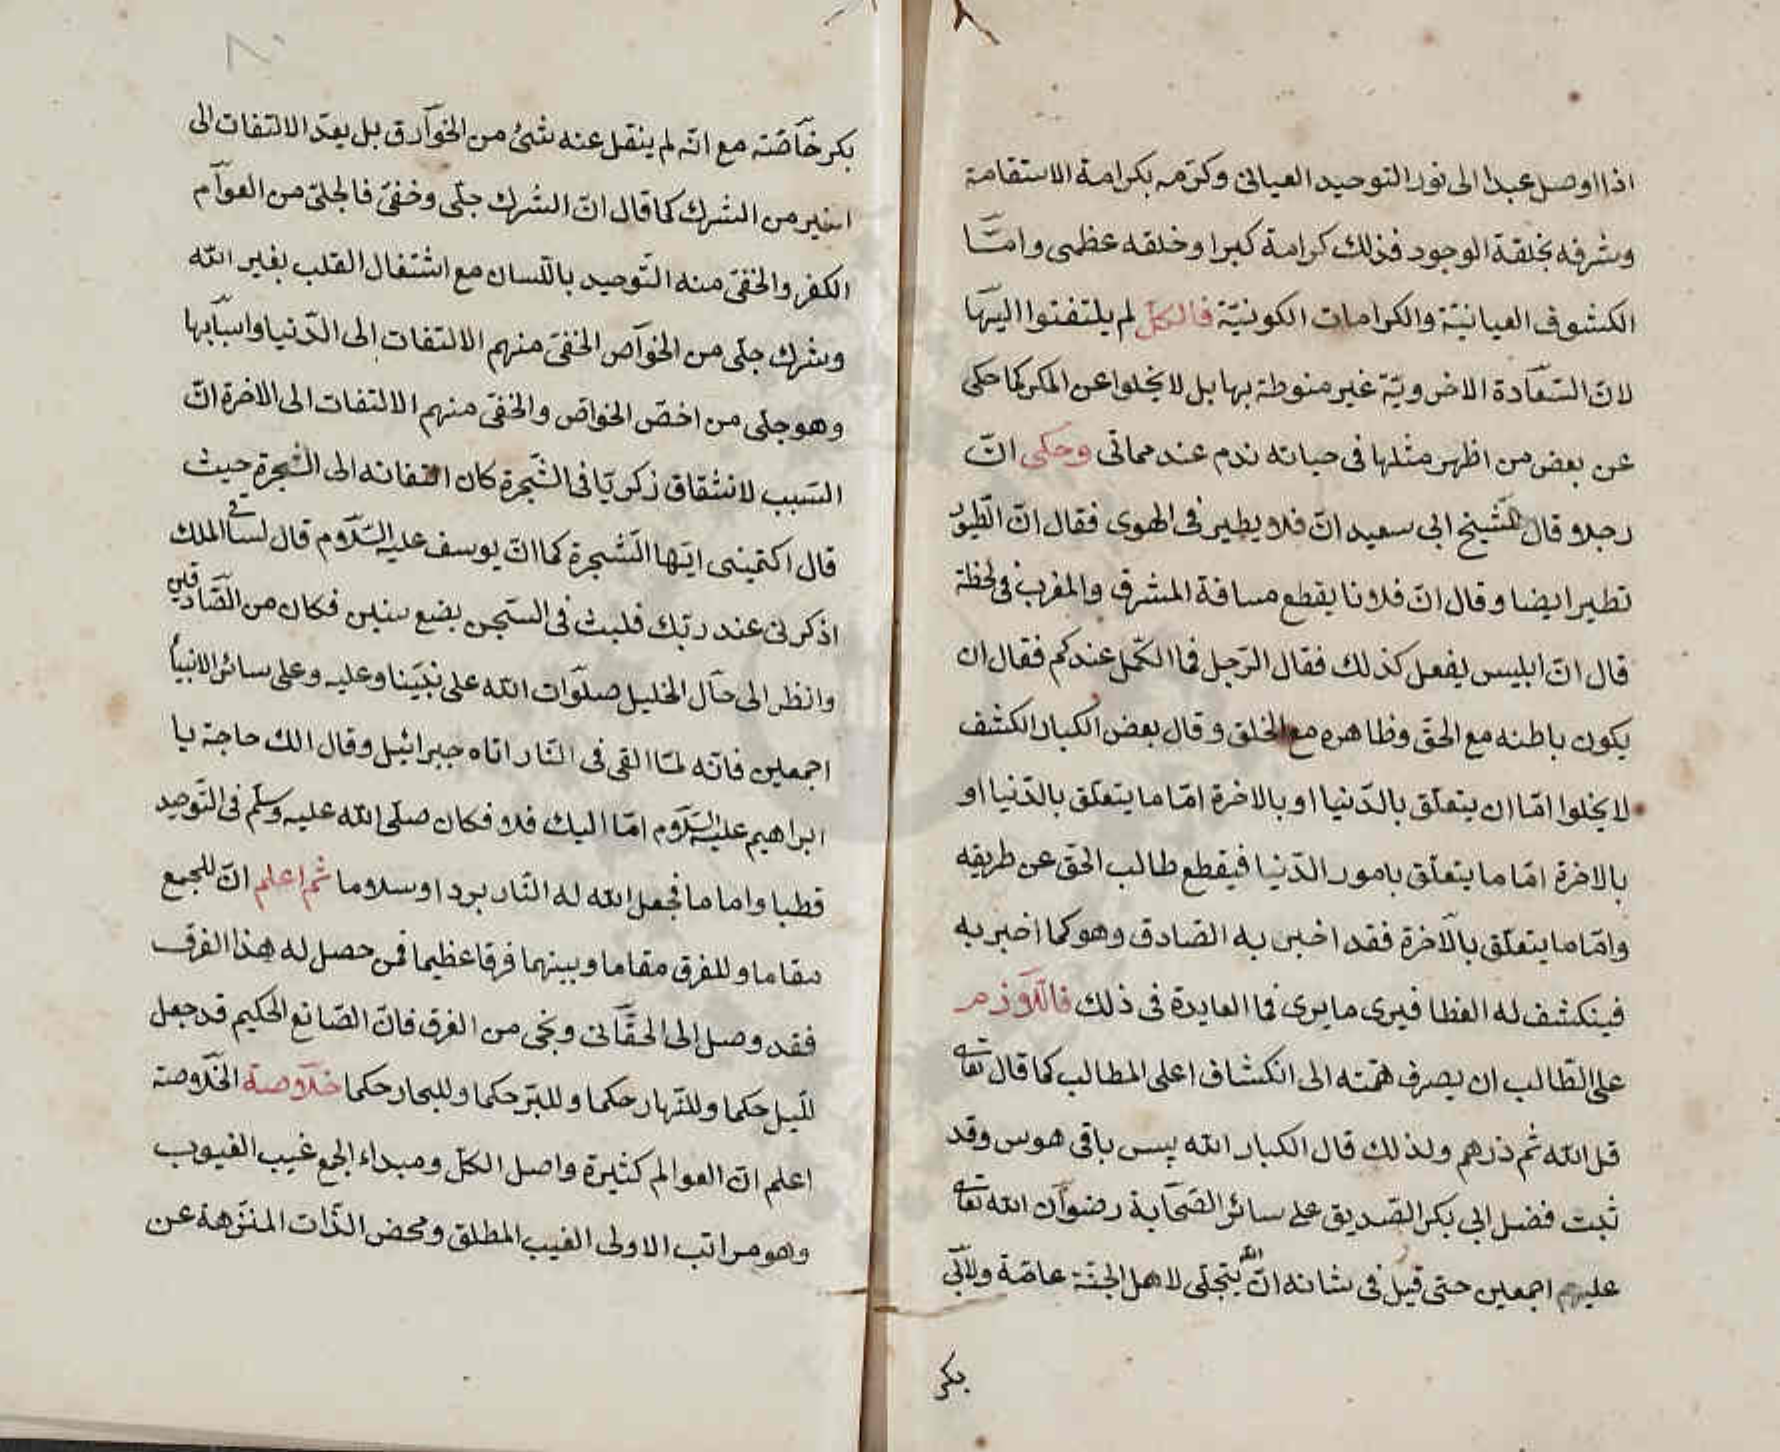 اذا اوصل عبدا الى نور التوحيد العيانى وكرّمه بكرامة الاستقامة
وشرفه بخلقة الوجود فذلك كرامة كبرا وخلقه عظمى وامّا
الكشوف العيانيّة والكرامات الكونيّة فالكلّ لم يلتفتوا اليها
لانّ السّعادة الاخرويّة غير منوطة بها بل لا يخلوا عن المكر كما حكى
عن بعض من اظهر مثلها فى حياته ندم عند مماتى وحكى انّ
رجلا و قال للشّيخ ابى سعيد انّ فلا يطير فى الهوى فقال انّ الطّيور
تطير ايضا وقال انّ فلانا يقطع مسافة المشرق والمغرب فى لحظة
قال انّ ابليس يفعل كذلك فقال الرّجل فما الكمّل عندكم فقال ان
يكون باطنه مع الحق وظاهره مع الخلق وقال بعض الكبار الكشف
لا يخلوا امّا ان يتعلّق بالدّنيا او بالاخرة امّا ما يتعلّق بالدّنيا او
بالاخرة امّا ما يتعلّق بامور الدّنيا فيقطع طالب الحق عن طريقه
وامّا ما يتعلّق بالآخرة فقد اخبر به الصّادق وهو كما اخبر به
فينكشف له الغطا فيرى ما يرى فما العايدة فى ذلك فاللّازم
على الطّالب ان يصرف همّته الى انكشاف اعلى المطالب كما قال تعالى
قل الله ثم ذرهم ولذلك قال الكبار الله بس باقى هوس وقد
ثبت فضل ابى بكر الصّديق على سائر الصّحابة رضوان الله تعالى
عليهم اجمعين حتى قيل فى شانه انّ الله يتجلّى لاهل الجنّة عامّة ولابى
بكر
بكر خاصّة مع انّه لم ينقل عنه شئ من الخوارق بل يعدّ الالتفات الى
من الشرك كما قال انّ الشرك جلّى وخفىّ فالجلىّ من العوام
الكفر والخفىّ منه التّوحيد باللّسان مع اشتغال القلب بغير الله
وشرك جلّى من الخواص الخفىّ منهم الالتفات الى الدّنيا واسبابها
وهو جلى من اخصّ الخواصّ والخفى منهم الالتفات الى الاخرة انّ
السّبب لانشقاق زكريّا فى الشّجرة كان التفاته الى الشّجرة حيث
قال اكتمينى ايّها الشّجرة كما انّ يوسف عليه السّلام قال لساقى الملك
اذكرنى عند ربّك فلبث فى السّجن بضع سنين فكان من الصّادقين
وانظر الى حال الخليل صلوات الله على نبيّنا وعليه وعلى سائر الانبياء
اجمعين فانّه لمّا القى فى النّار اتاه جبرائيل وقال الك حاجة يا
ابراهيم عليه السّلام امّا اليك فلا فكان صلّى الله عليه وسلّم فى التّوحيد
قطبا واماما فجعل الله له النّار بردا وسلاما ثم اعلم انّ للجمع
مقاما وللفرق مقاما وبينهما فرقا عظيما فمن حصل له هذا الفرق
فقد وصل الى الحقّانى ونجى من الغرق فانّ الصّانع الحكيم قد جعل
للّيل حكما وللنّهار حكما وللبرّ حكما وللبحار حكما خلاصة الخلاصة
اعلم انّ العوالم كثيرة واصل الكلّ ومبداء الجمع غيب الغيوب
وهو مراتب الاولى الغيب المطلق ومحض الذّات المنزّهة عن